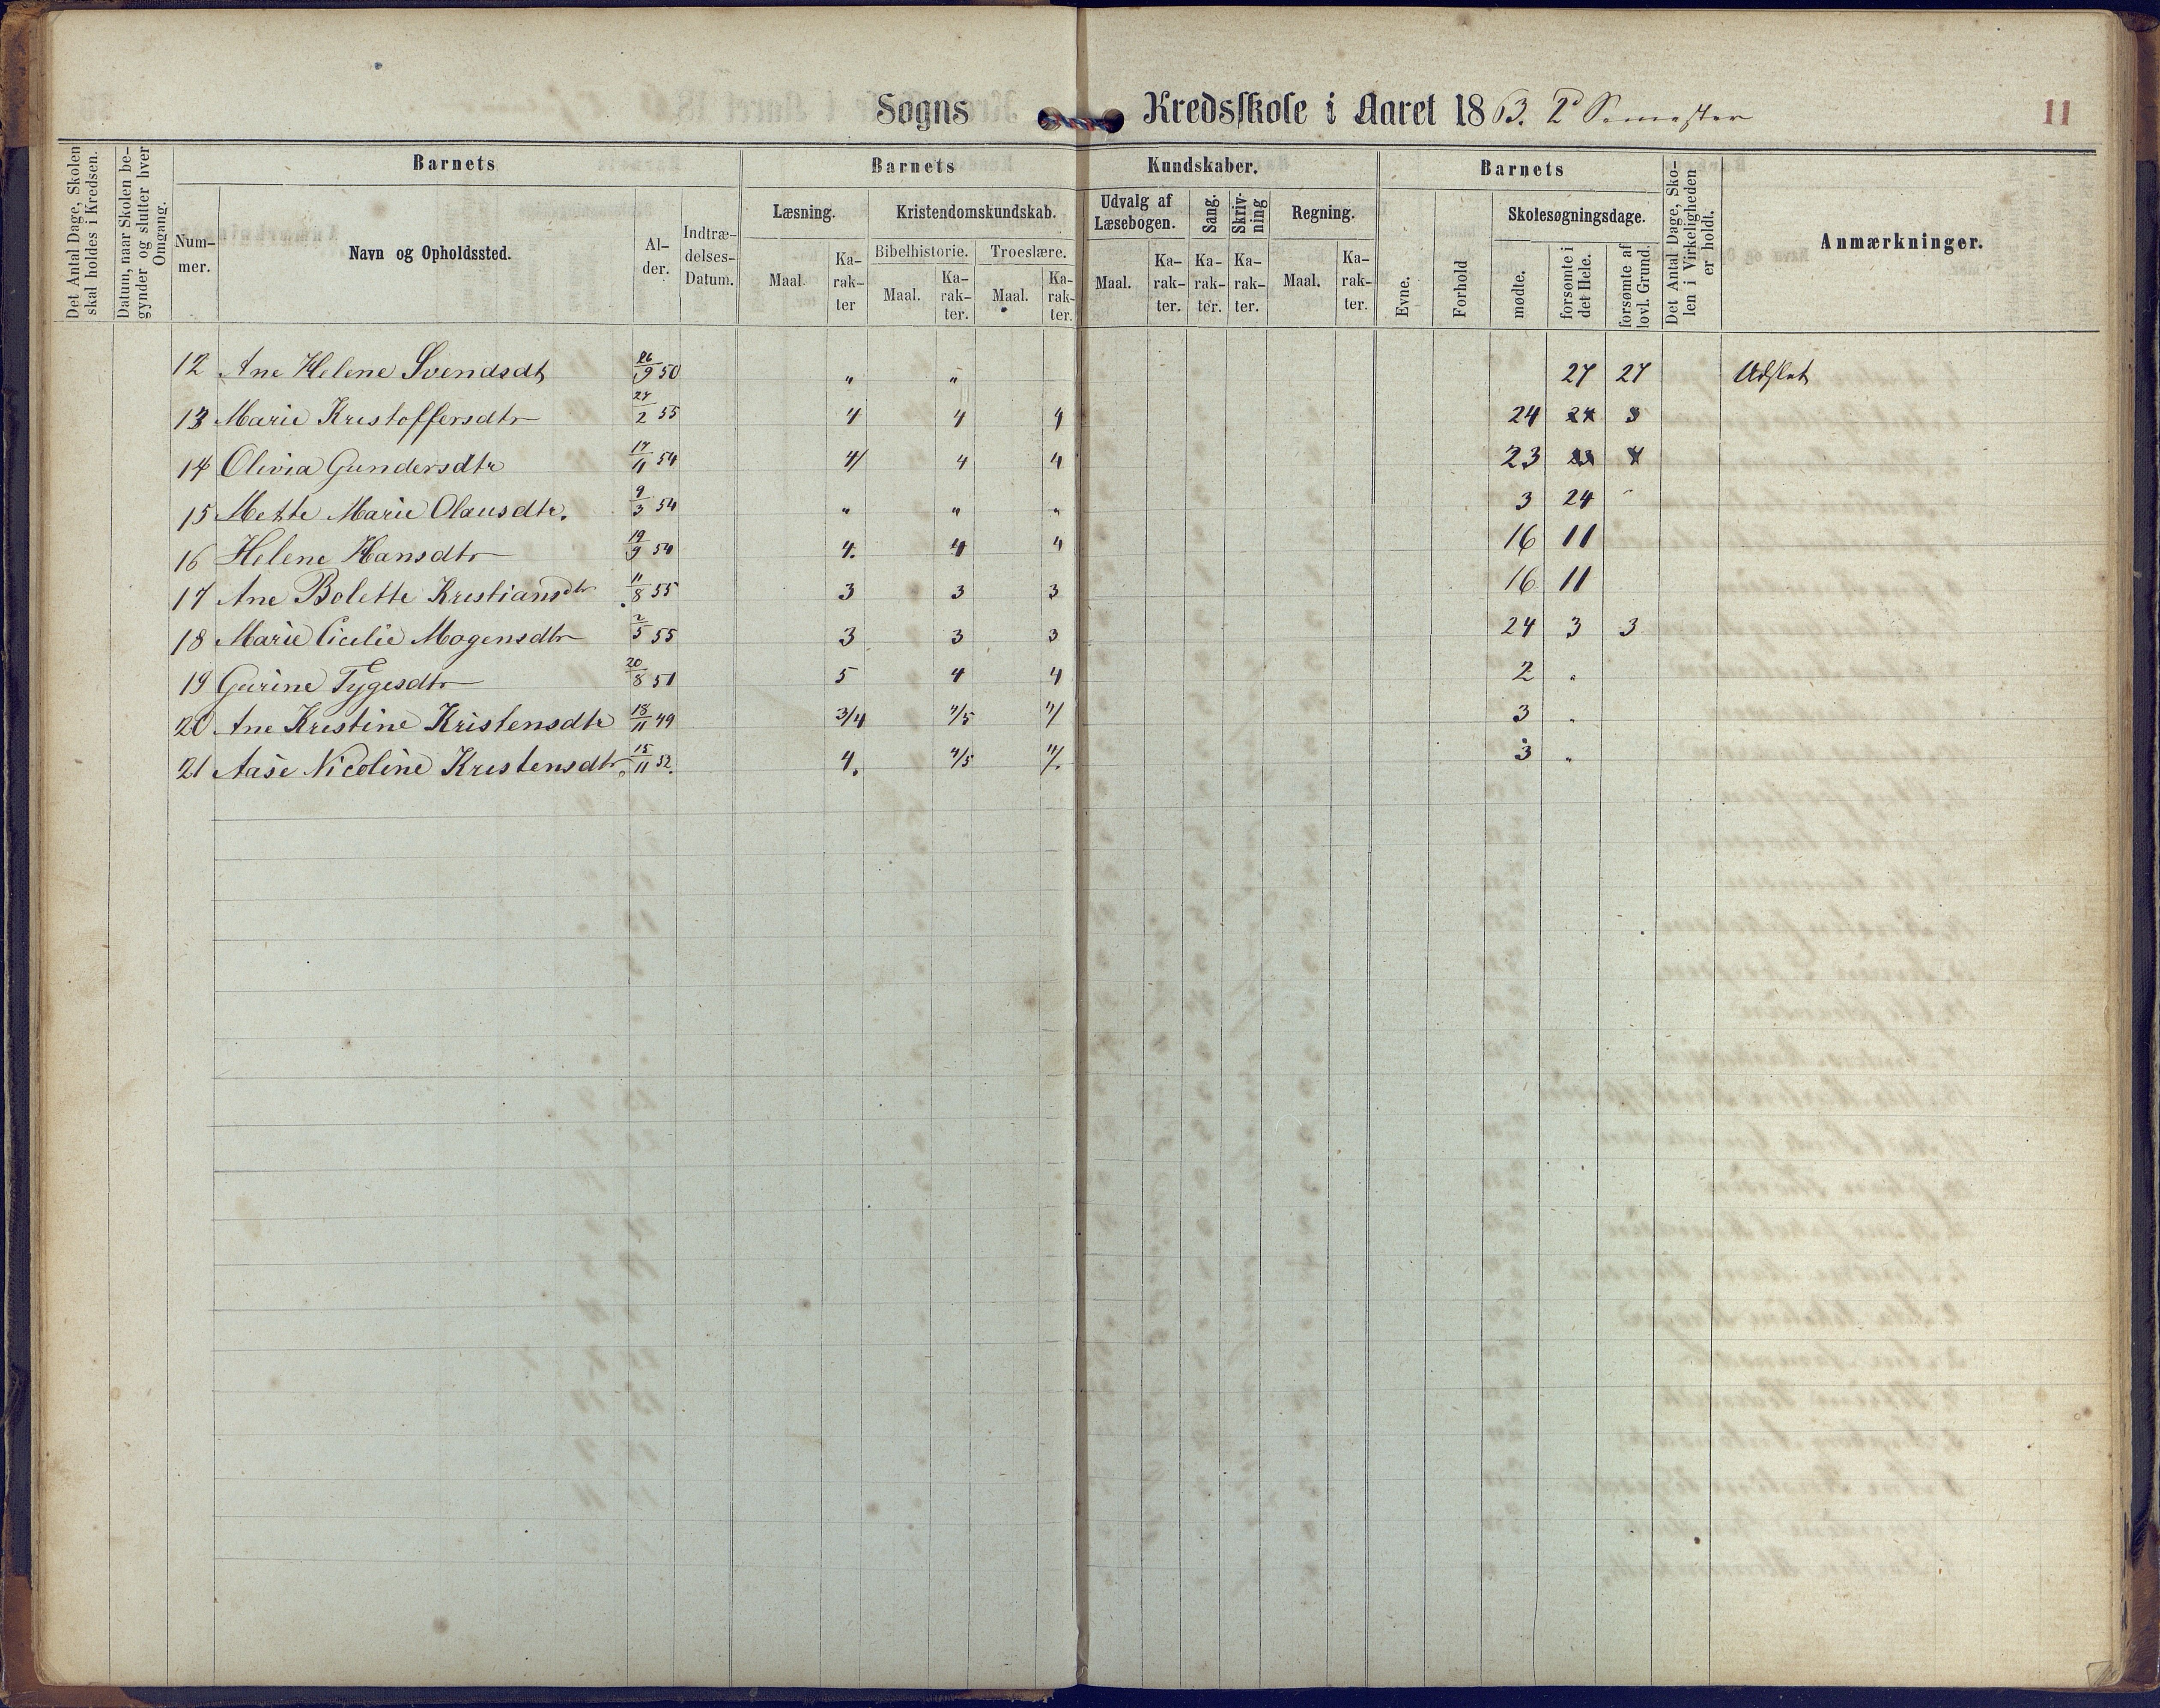 Sogns Kredsskole i Aaret 1863. 2d Semester 11
Det Antal Dage, Skolen skal holdes i Kredsen.
Datum, naar Skolen begynder og slutter hver Omgang.
Barnets
Nummer.
Navn og Opholdssted.
Alder.
Indtrædelses-Datum.
Barnets Kundskaber.
Læsning.
Maal
Karakter
Kristendomskundskab.
Bibelhistorie.
Maal.
Karakter.
Troeslære.
Maal.
Karakter.
Udvalg af Læsebogen.
Maal.
Karakter.
Sang.
Karakter.
Skrivning
Karakter.
Regning.
Maal.
Karakter.
Barnets
Evne.
Forhold
Skolesøgningsdage.
mødte.
forsømte i det Hele.
forsømte af lovl. Grund.
Det Antal Dage, Skolen i Virkeligheden er holdt.
Anmærkninger.
12 Ane Helene Svendsdt 26/9 50 " " 27 27 Udslet
13 Marie Kristoffersdtr 27/2 55 4 4 4 24 3
14 Olivia Gundersdtr 17/11 54 4/ 4 4 23 4
15 Mette Marie Olausdtr. 9/3 54 " " " 3 24
16 Helene Hansdtr 19/9 54 4. 4 4 16 11
17 Ane Bolette Kristiansdtr 11/8 55 3 3 3 16 11
18 Marie Cicilie Mogensdtr 2/5 55 3 3 3 24 3 3
19 Gurine Tygesdtr 20/8 51 5 4 4 2 "
20 Ane Kristine Kristensdtr 18/11 49 3/4 4/5 4/ 3 "
21 Aase Nicoline Kristensdtr. 15/11 52. 4. 4/5 4/. 3 "